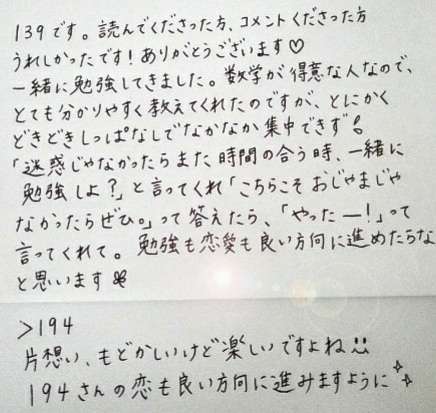 139です。読んでくださった方、コメントくださった方
うれしかったです！ありがとうございます♡
一緒に勉強してきました。数学が得意な人なので、
とても分かりやすく教えてくれたのですが、とにかく
どきどきしっぱなしでなかなか集中できず
「迷惑じゃなかったらまた時間の合う時、一緒に
勉強しよ？」と言ってくれ「こちらこそおじゃまじゃ
なかったらぜひ。」って答えたら、「やったー！」って
言ってくれて。勉強も恋愛も良い方向に進めたらな
と思います
>194
片想い、もどかしいけど楽しいですよね
194さんの恋も良い方向に進みますように